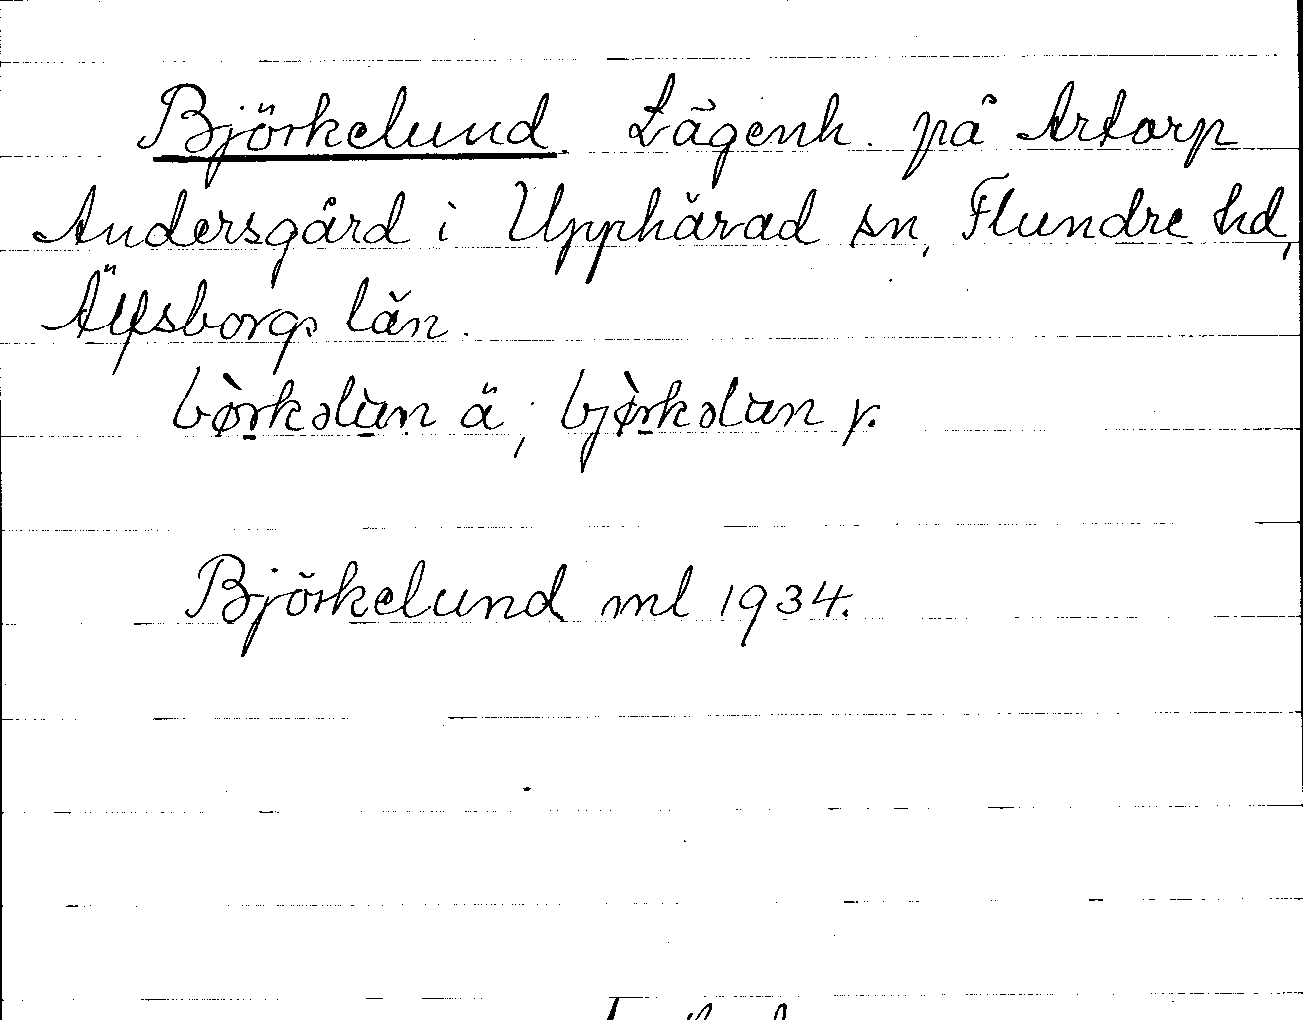 Björkelund. Lägenh. på Artorp
Andersgård i Upphärad sn, Flundre hd,
Älfsborgs län.
bø̀rkəlun ä, bjø̀rkəlun y.
Björkelund ml 1934.